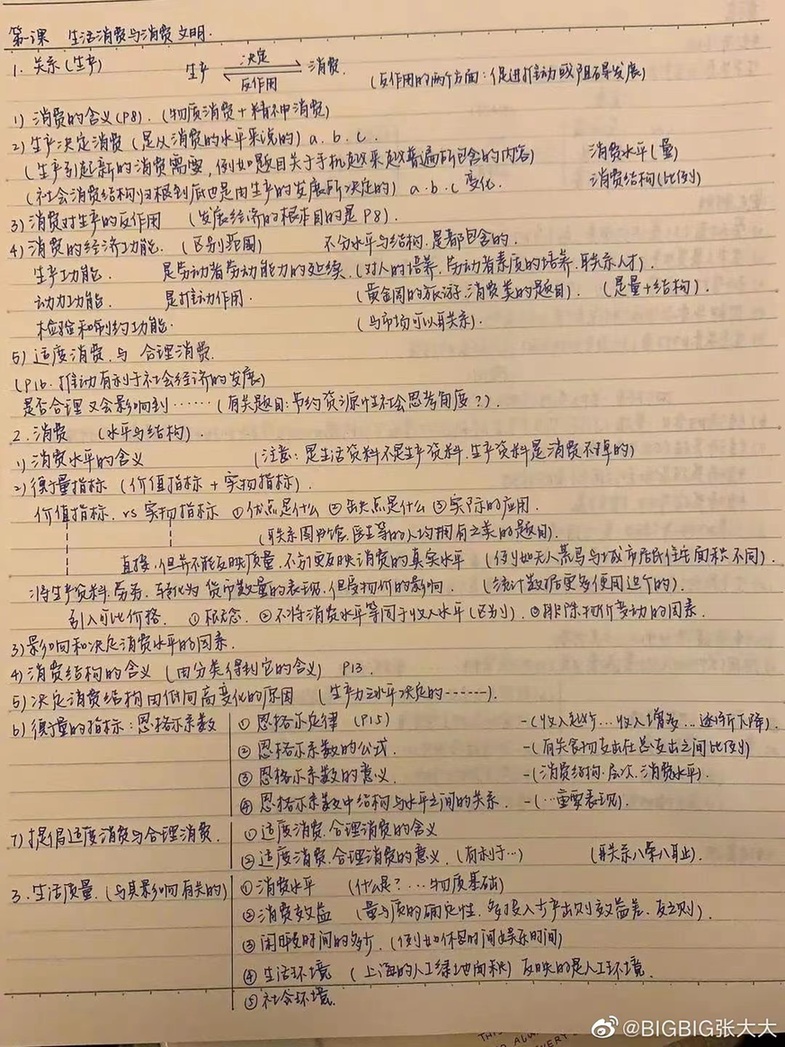 第一课 生活消费与消费文明.
1. 关系(生产) 生产 决定 消费. (反作用的两个方面:促进推动或阻碍发展)
反作用
1) 消费的含义(P8). (物质消费+精神消费)
2) 生产决定消费 (是从消费的水平来说的) a. b. c.
(生产引起新的消费需要, 例如题目关于手机越来越普遍所包含的内容) 消费水平(量)
(社会消费结构归根到底也是由生产的发展所决定的) a.b.c 变化. 消费结构(比例)
3) 消费对生产的反作用 (发展经济的根本目的是 P8).
4) 消费的经济功能. (区别范围) 不分水平与结构.是都包含的.
生产功能. 是劳动者劳动能力的延续.(对人的培养.劳动者素质的培养.联系人才).
动力功能. 是推动作用 (黄金周的旅游.消费类的题目). (是量+结构).
检验和制约功能. (与市场可以联系).
5) 适度消费.与 合理消费.
(P16. 推动有利于社会经济的发展)
是否合理又会影响到……(有关题目:节约资源性社会思考角度?).
2. 消费 (水平与结构).
1) 消费水平的含义 (注意: 是生活资料不是生产资料.生产资料是消费不掉的)
2) 衡量指标 (价值指标 + 实物指标).
价值指标. vs 实物指标 ①优点是什么 ②缺点是什么 ③实际的应用.
(联系图书馆.医生等的人均拥有之类的题目).
直接.但并不能反映质量,不分更反映消费的真实水平 (例如无人荒岛与城市居民住宅面积不同).
将生产资料.劳务.转化为货币数量的表现.但受物价的影响. (统计数据更多使用这个的).
引入可比价格. ①概念. ②不将消费水平等同于收入水平(区别). ③排除物价变动的因素.
3) 影响和决定消费水平的因素.
4) 消费结构的含义 (由分类得到它的含义) P13
5) 决定消费结构由低向高变化的原因 (生产力水平决定的------).
6) 衡量的指标: 恩格尔系数 ① 恩格尔定律 (P15) -(收入越少...收入增多...逐渐下降).
② 恩格尔系数的公式. -(有关食物支出在总支出之间比例)
③ 恩格尔系数的意义 -(消费结构.层次.消费水平).
④ 恩格尔系数中结构与水平之间的关系. -(...重要表现).
7) 提倡适度消费与合理消费. ① 适度消费.合理消费的含义
② 适度消费.合理消费的意义. (有利于…) (联系八荣八耻).
3. 生活质量. (与其影响有关的) ① 消费水平 (什么是?...物质基础)
② 消费效益 (量与质的确定性.多投入少产出则效益差.反之则).
③ 闲暇时间的多少. (例如休息时间娱乐时间)
④ 生活环境 (上海的人工绿地面积) 反映的是人工环境.
⑤ 社会环境.
@BIGBIG张大大